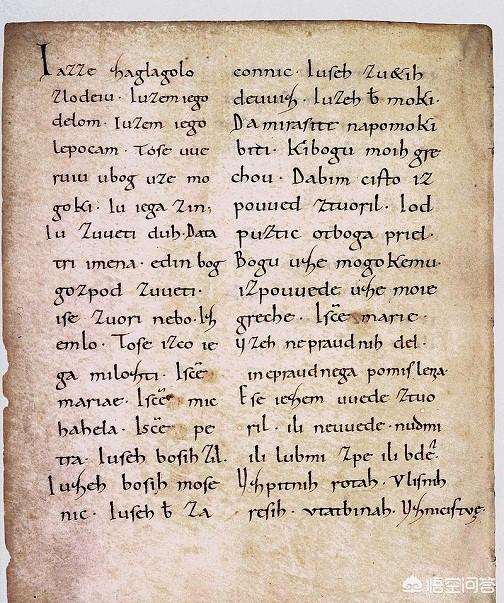 Iazze zaglagolo
zlodeiu · Iuzem iego
delom · Iuzem iego
lepocam · Tose uue
ruiu ubog uze mo
goki · Iu iega zin;
Iu Zuueti duh · Da ta
tri imena · edin bog
gozpod zuueti ·
ise zuori nebo · Ish
emlo · Tose izco ie
ga milozti · Isce
mariae · Isce mic
hahela · Isce pe
tra · Iuseh bosih zil ·
Iuzeh bosih mose
nic · Iuseh b za
connic · Iuseh zu&ih
deuuiz · Iuzeh b moki ·
Da mi rasite napomoki
biti · Ki bogu moih gre
chou · Da bim cisto iz
pouued ztuoril · Iod
puztic ot boga priel ·
Bogu uze mogokemu ·
izpouuede uze moie
greche · I sce marie ·
uzeh nepraudnih del ·
i nepraudnega pomislena ·
Ese iezem uuede ztuo
ril · ili neuuede · nudmi
ili lubmi zpe ili bde ·
Uzpitnih rotah · Ulisnih
resih · Vtatbinah · Uznicistuo
悟空问答